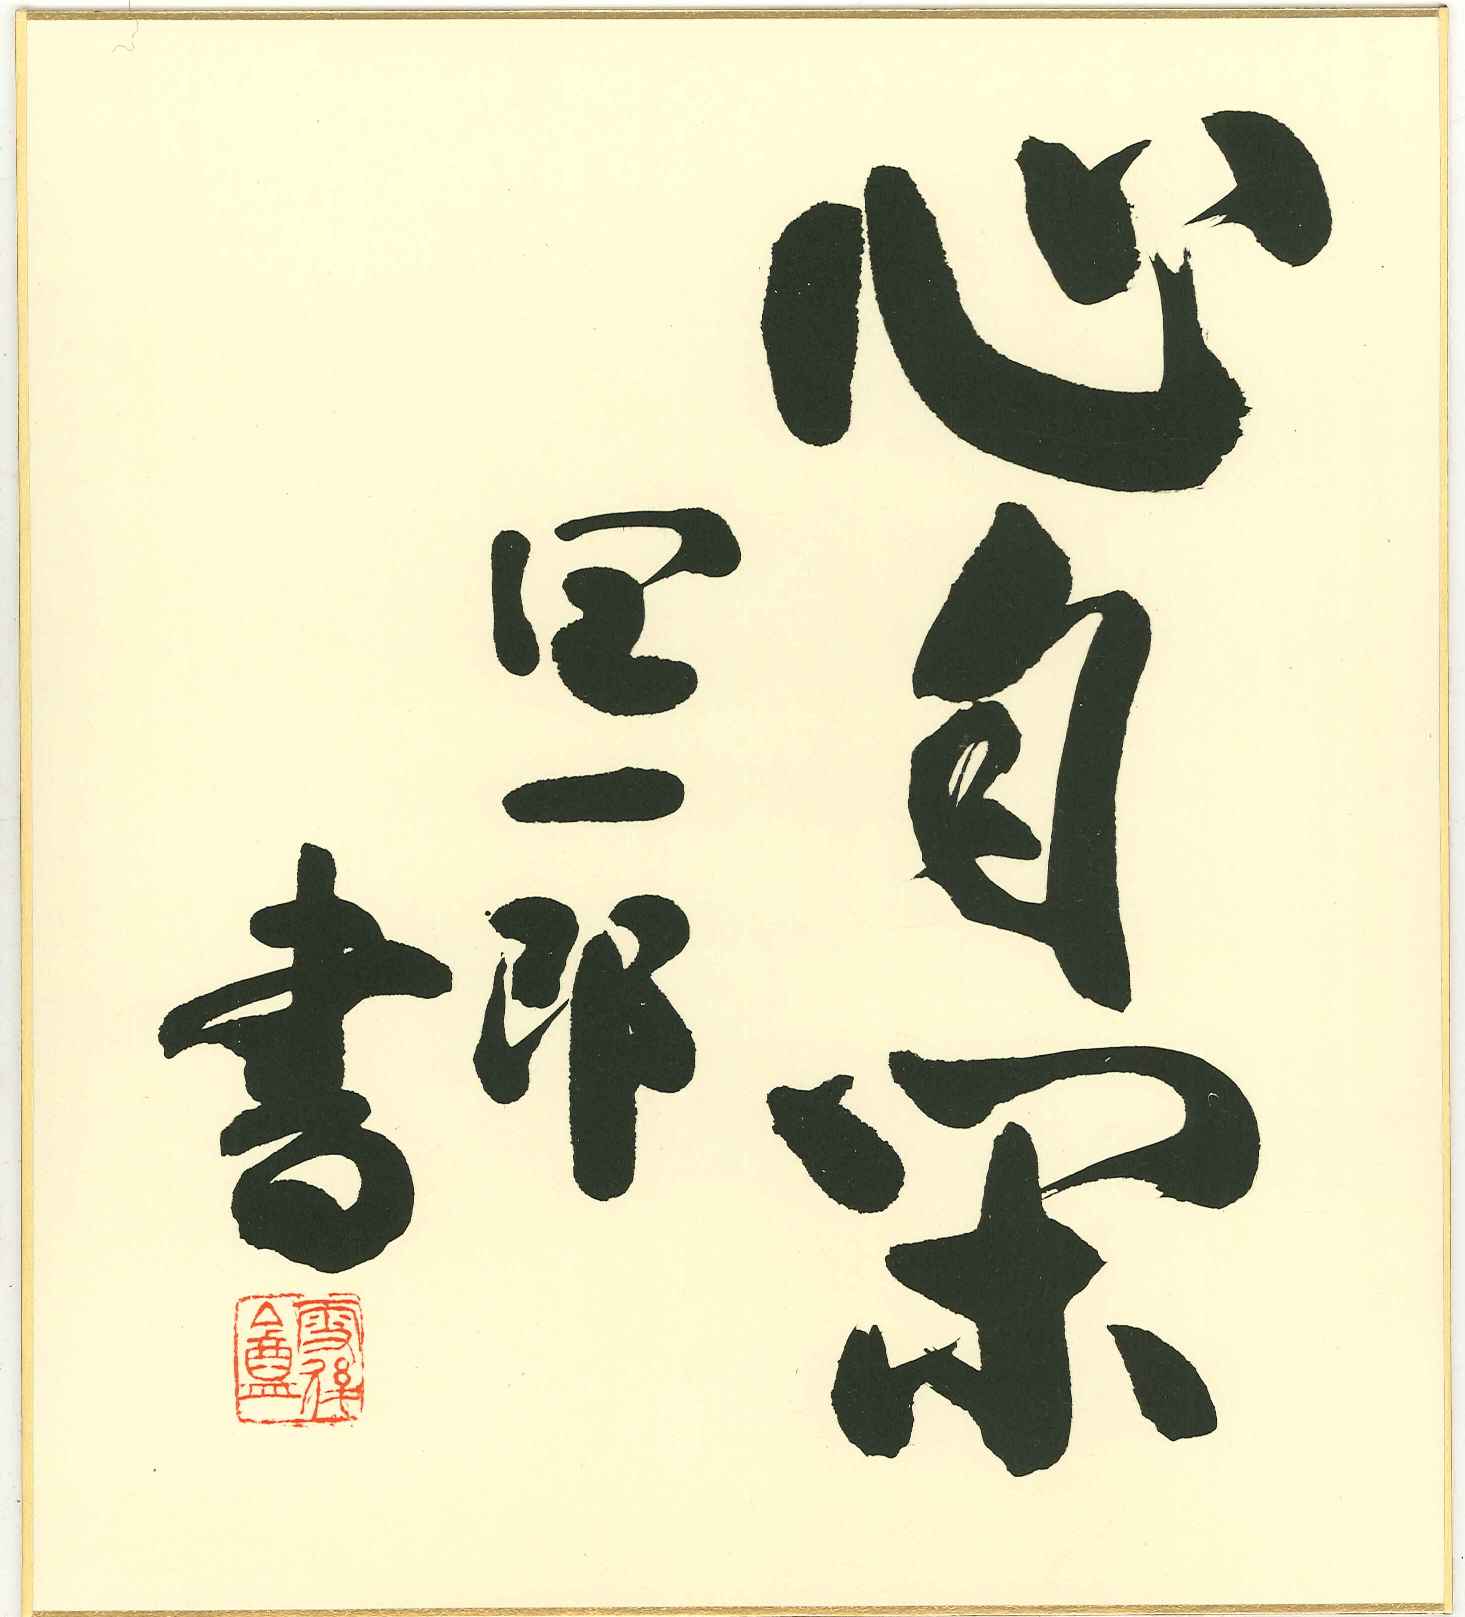 心自閑
一郎
書
雪後
盦